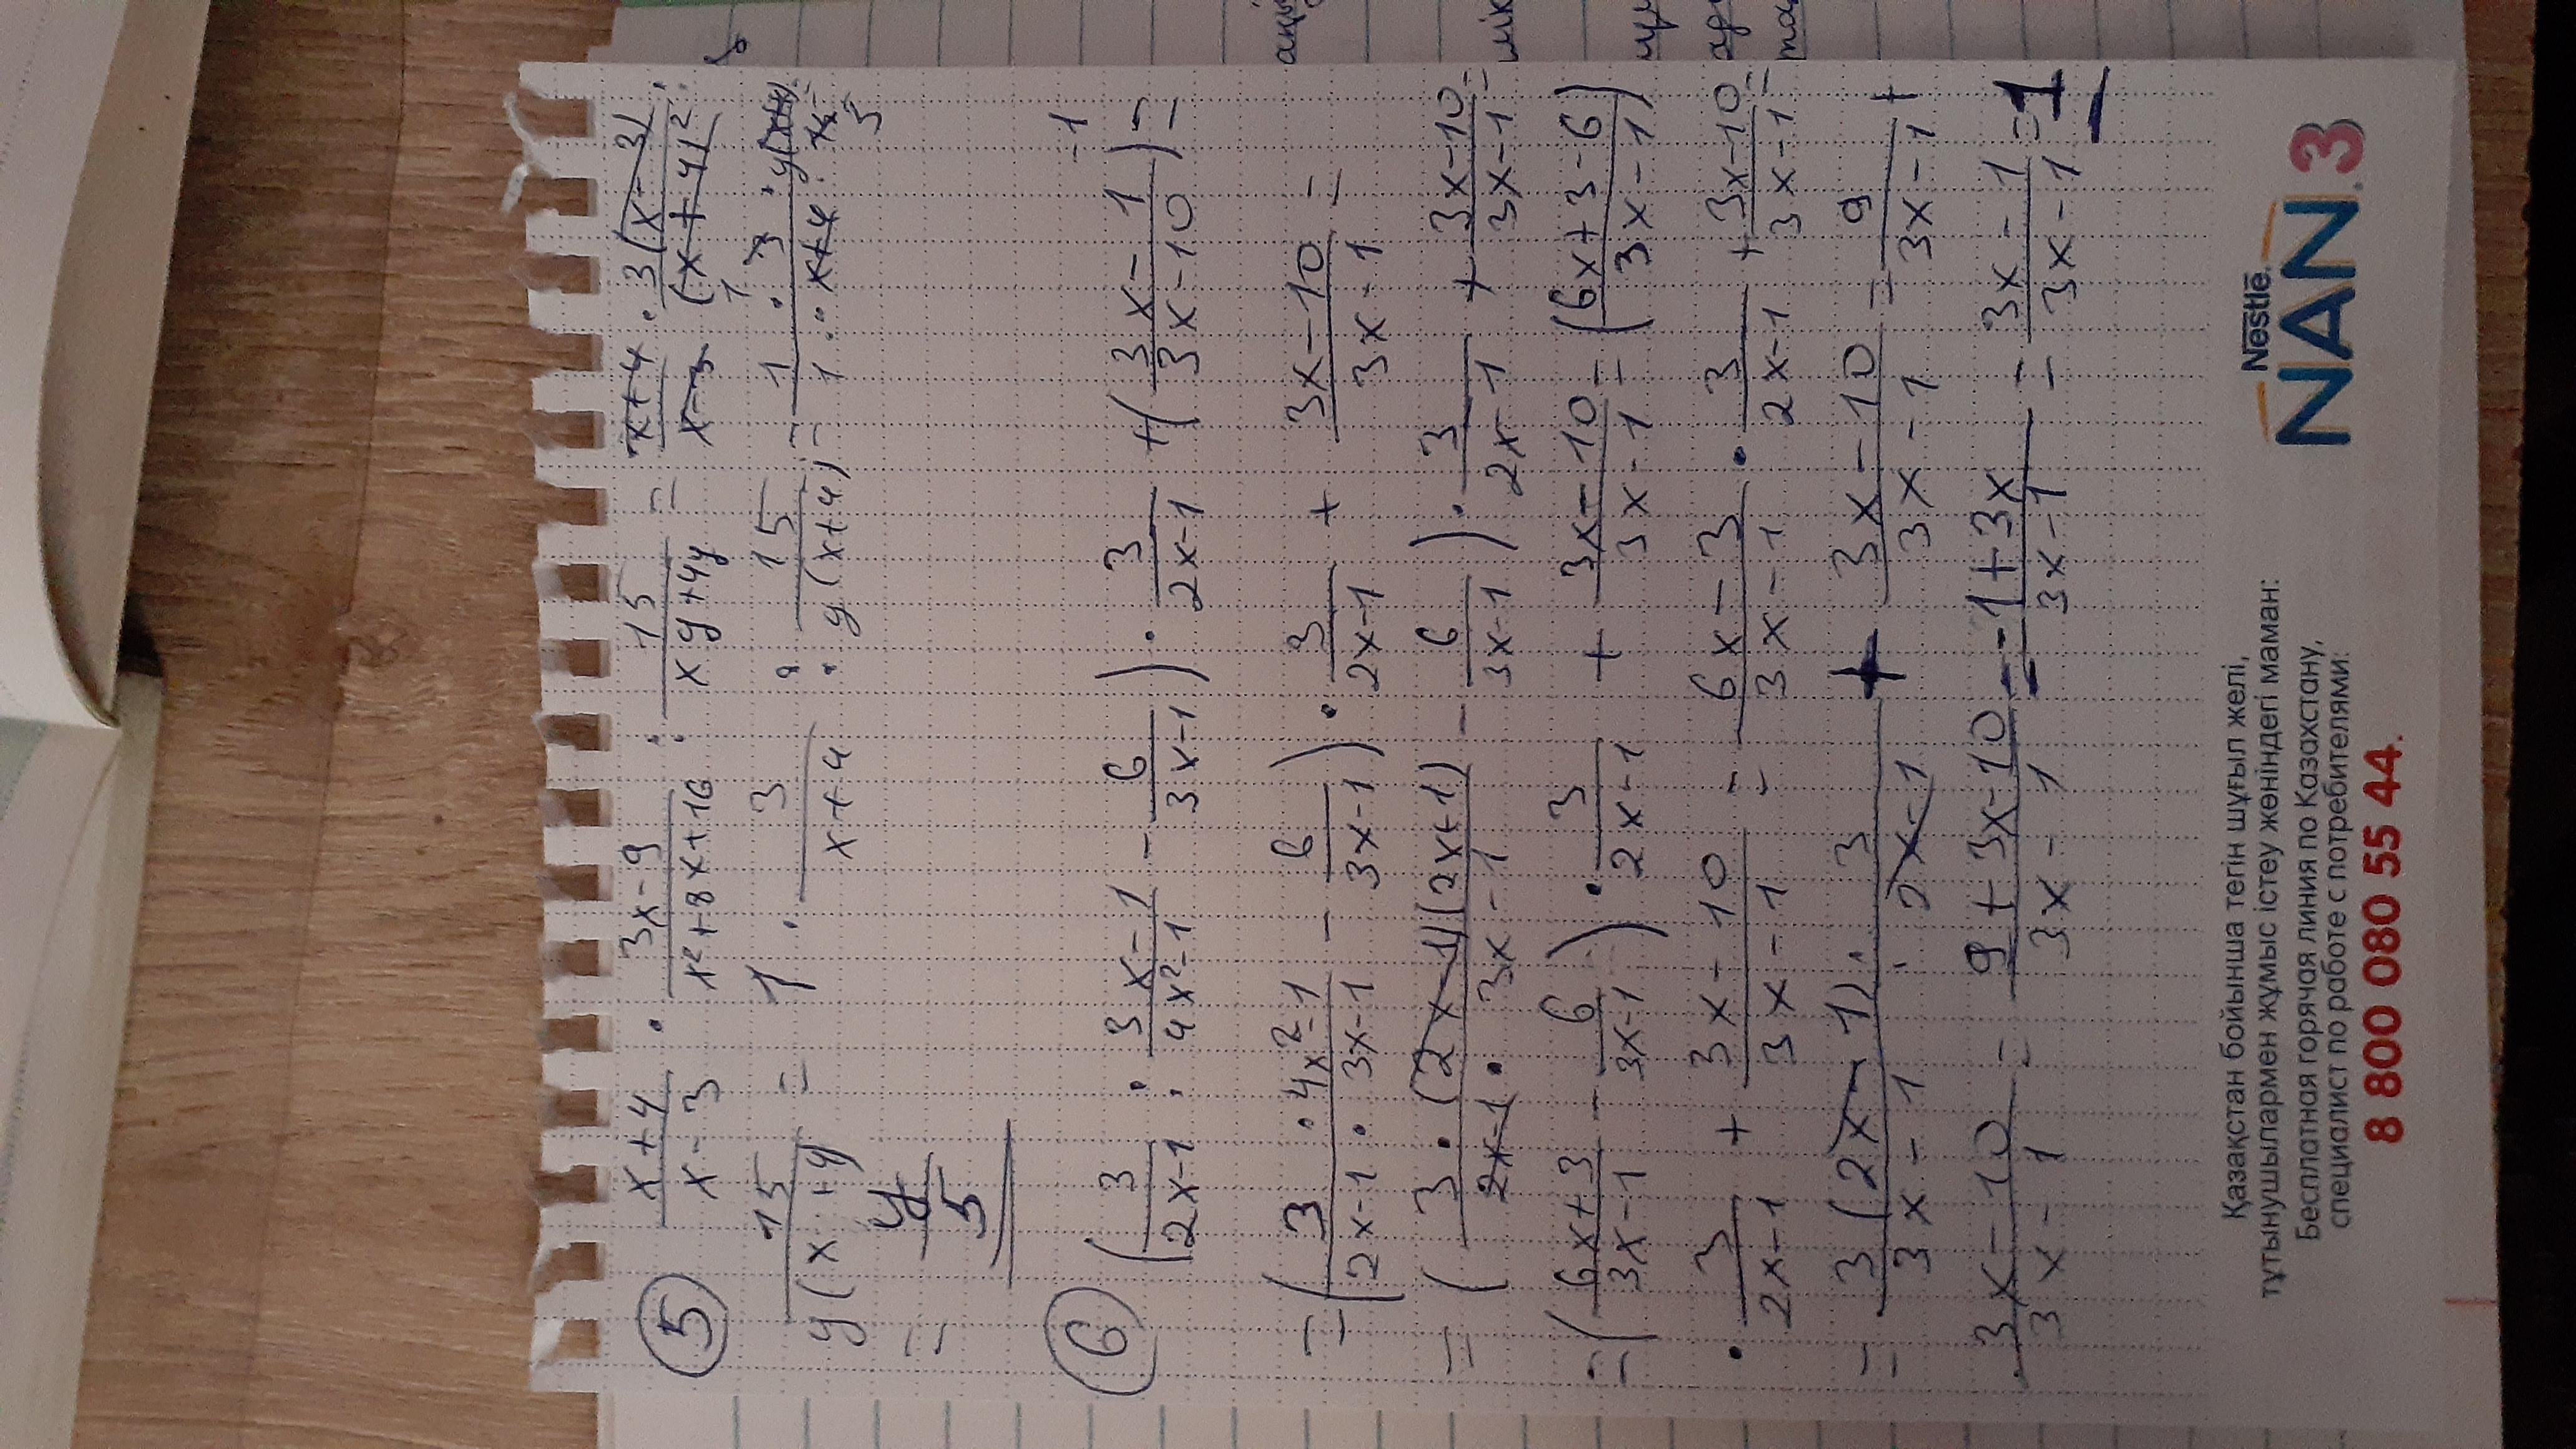 ⑤ (x+4)/(x-3) · (3x-9)/(x²+8x+16) : 15/(xy+4y) = (x+4)/(x-3) · 3(x-3)/(x+4)² :
15/y(x+4) = 1 · 3/(x+4) : 15/y(x+4) =
= y/5
⑥ (3/(2x-1) : (3x-1)/(4x²-1) - 6/(3x-1)) · 3/(2x-1) + ((3x-1)/(3x-10))⁻¹ =
= (3/(2x-1) · (4x²-1)/(3x-1) - 6/(3x-1)) · 3/(2x-1) + (3x-10)/(3x-1) =
= (3·(2x-1)(2x+1)/(2x-1)·3x-1 - 6/(3x-1)) · 3/(2x-1) + (3x-10)/(3x-1) =
= ((6x+3)/(3x-1) - 6/(3x-1)) · 3/(2x-1) + (3x-10)/(3x-1) = ((6x+3-6)/(3x-1))
· 3/(2x-1) + (3x-10)/(3x-1) = (6x-3)/(3x-1) · 3/(2x-1) + (3x-10)/(3x-1) =
= 3(2x-1)/(3x-1) · 3/(2x-1) + (3x-10)/(3x-1) = 9/(3x-1) +
(3x-10)/(3x-1) = (9+3x-10)/(3x-1) = (-1+3x)/(3x-1) = (3x-1)/(3x-1) = 1
Қазақстан бойынша тегін шұғыл желі,
тұтынушылармен жұмыс істеу жөніндегі маман:
Бесплатная горячая линия по Казахстану,
специалист по работе с потребителями:
8 800 080 55 44.
Nestlé
NAN. 3